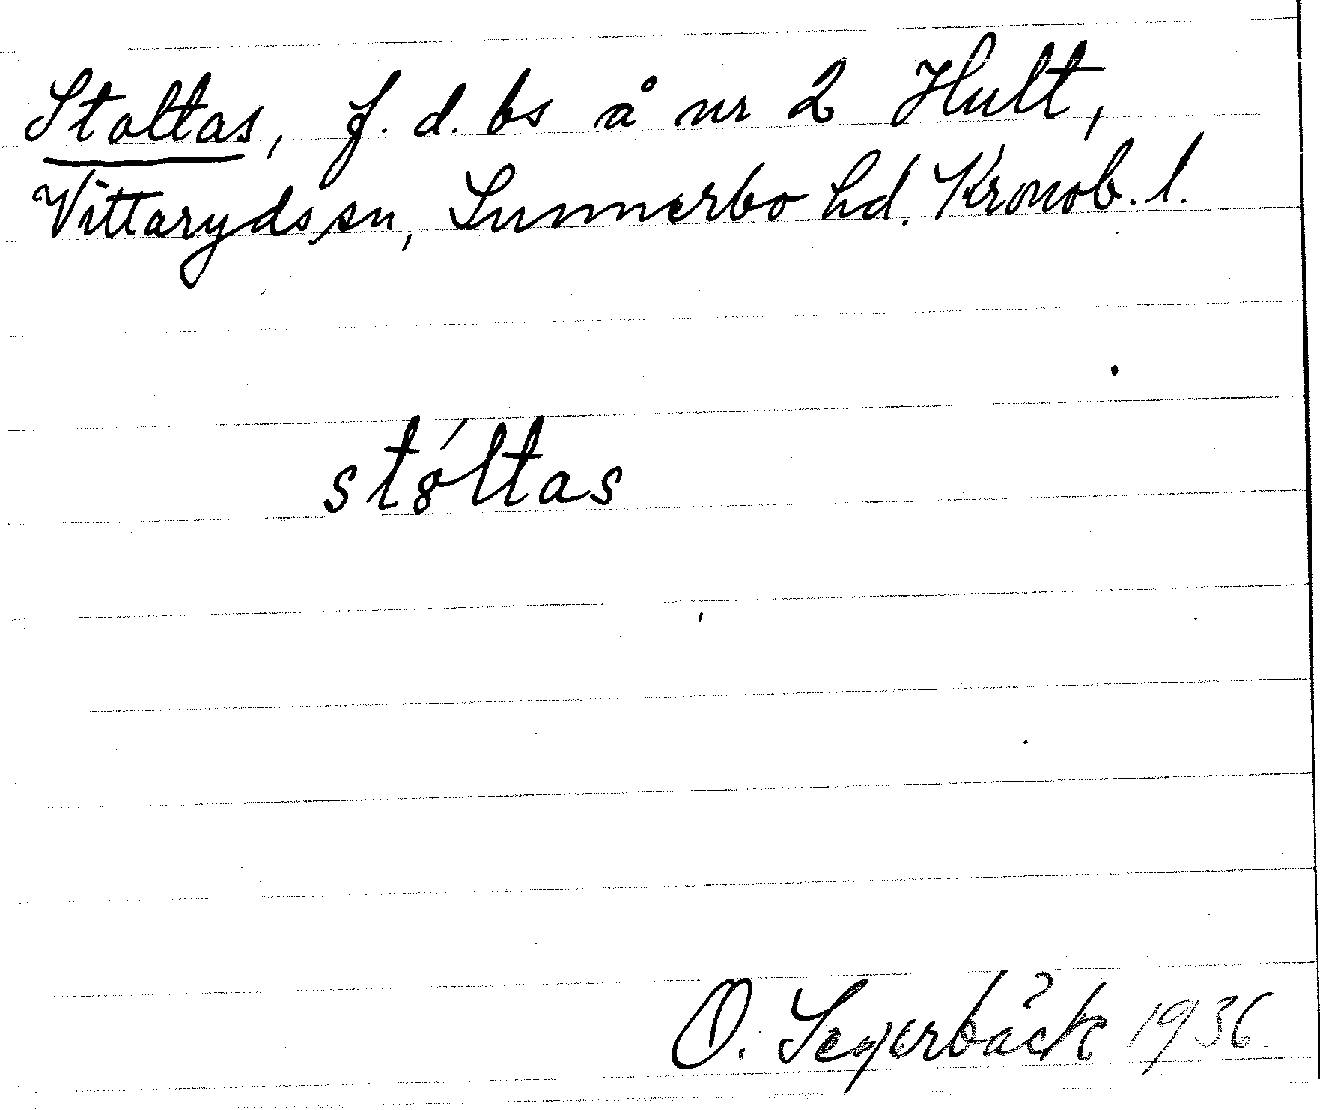 Stoltas, f. d. bs å nr 2 Hult,
Vittaryds sn, Sunnerbo hd. Kronob. l.
stóltas
O. Segerbäck 1936